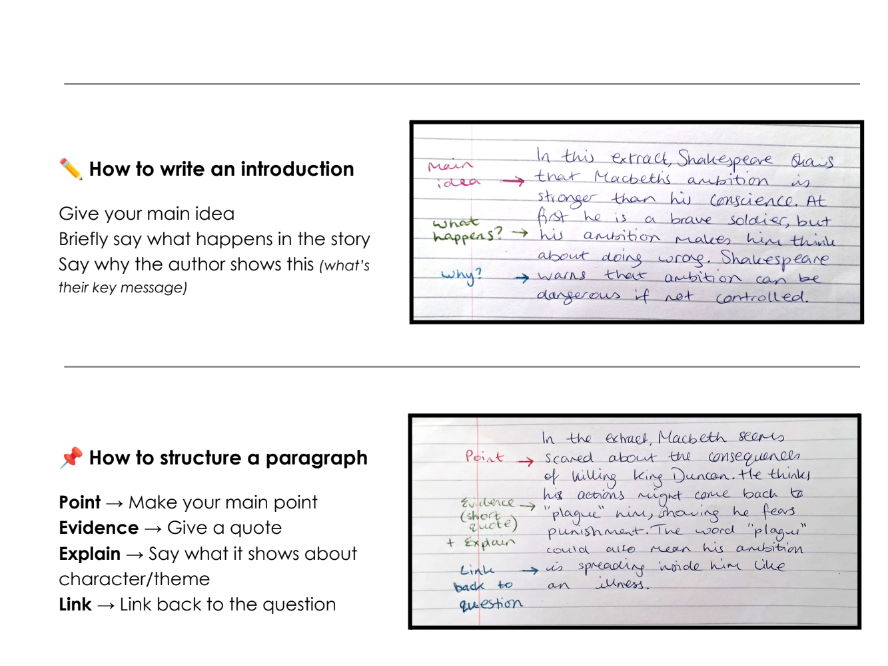 ✏️ How to write an introduction
Give your main idea
Briefly say what happens in the story
Say why the author shows this (what's
their key message)
Main
idea →
what
happens? →
why? →
In this extract, Shakespeare shows
that Macbeth's ambition is
stronger than his conscience. At
first he is a brave soldier, but
his ambition makes him think
about doing wrong. Shakespeare
warns that ambition can be
dangerous if not controlled.
📌 How to structure a paragraph
Point → Make your main point
Evidence → Give a quote
Explain → Say what it shows about
character/theme
Link → Link back to the question
Point →
Evidence →
(short
quote)
+ Explain
Link →
back to
question
In the extract, Macbeth seems
scared about the consequences
of killing King Duncan. He thinks
his actions might come back to
"plague" him, showing he fears
punishment. The word "plague"
could also mean his ambition
is spreading inside him like
an illness.